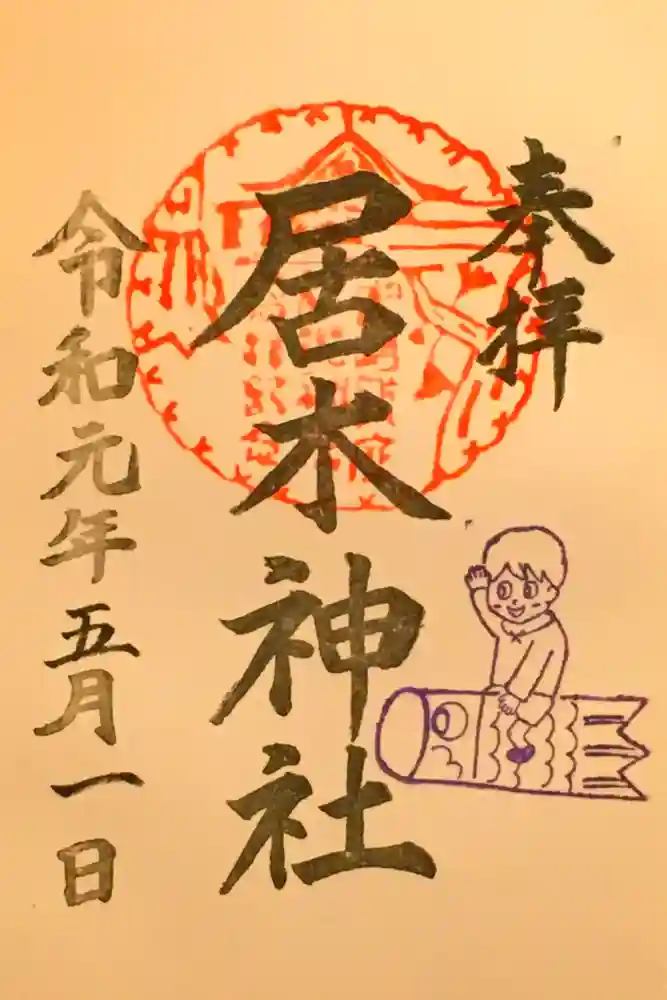 奉拝
居木神社
令和元年五月一日